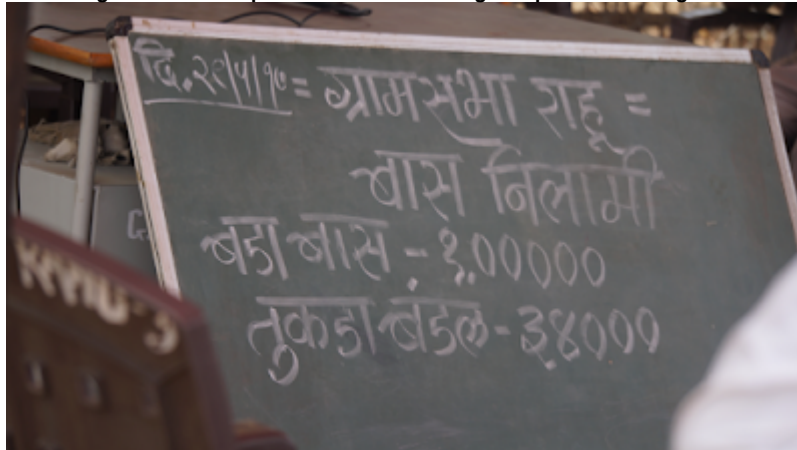 दि. २९/५/१७ = ग्रामसभा राहू =
बास निलामी
बडा बास - १,०००००
तुकडा बंडल - ३४०००